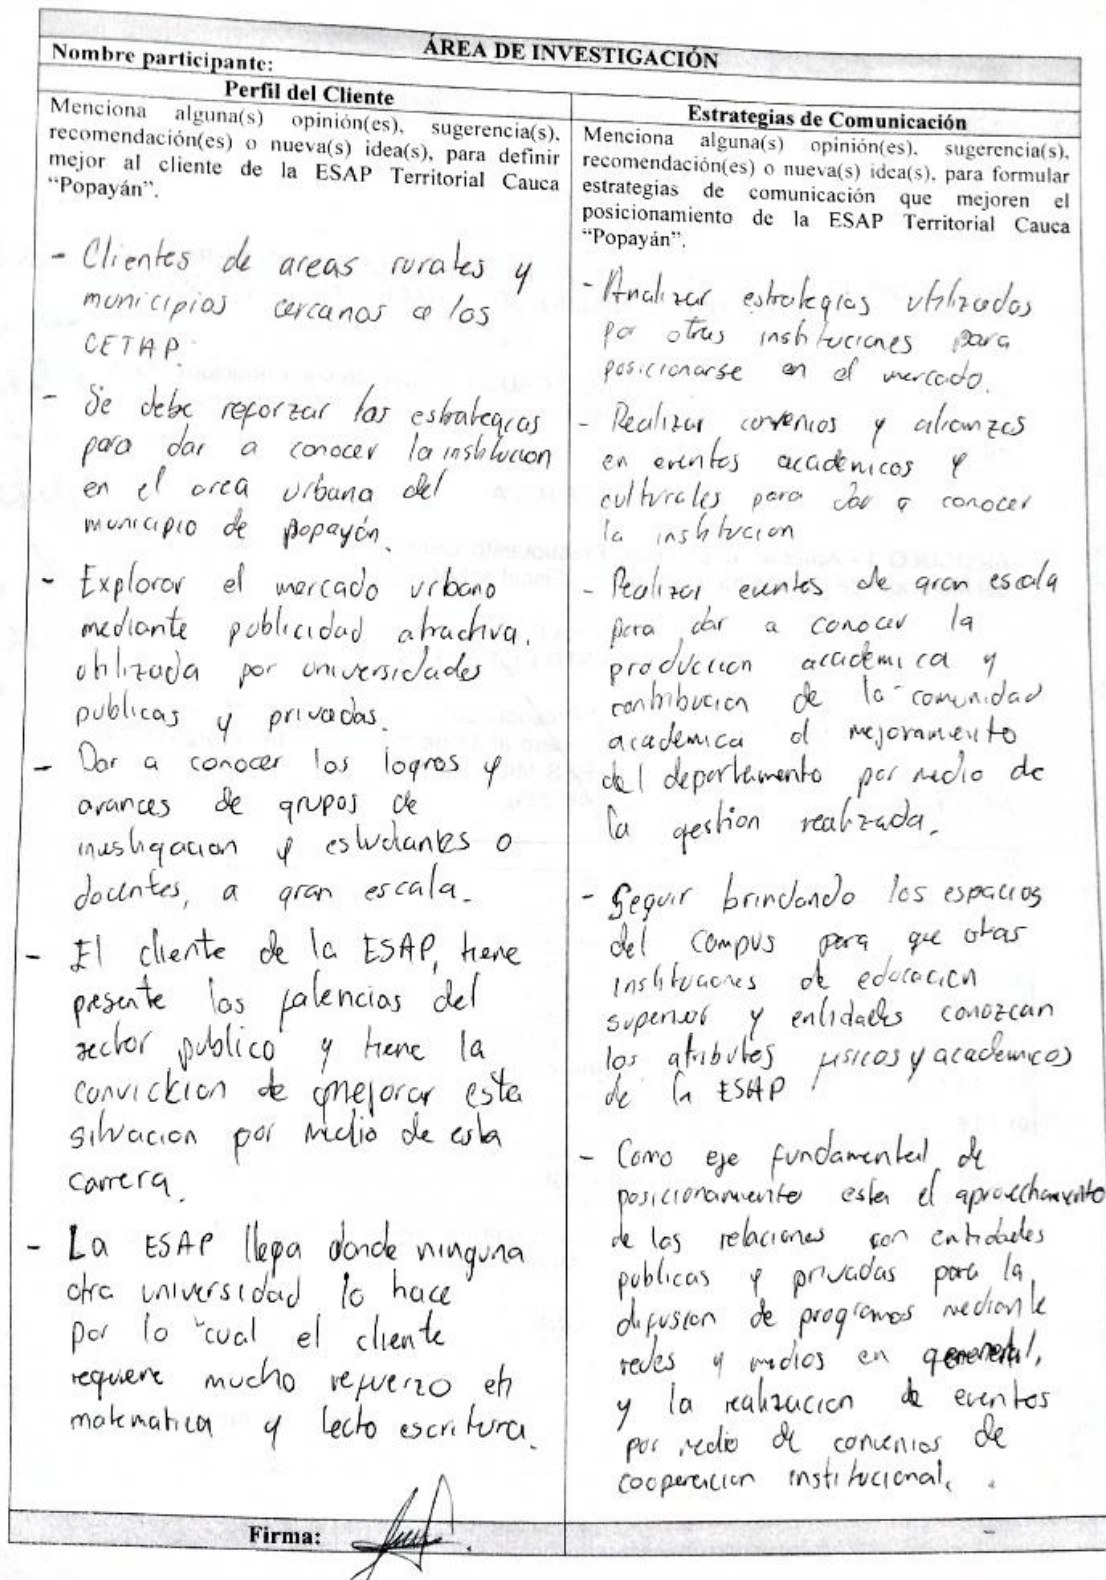 ÁREA DE INVESTIGACIÓN
Nombre participante:
Perfil del Cliente
Menciona alguna(s) opinión(es), sugerencia(s),
recomendación(es) o nueva(s) idea(s), para definir
mejor al cliente de la ESAP Territorial Cauca
“Popayán”.
- Clientes de areas rurales y
municipios cercanos a los
CETAP.
- Se debe reforzar las estrategias
para dar a conocer la institucion
en el area urbana del
municipio de popayán.
- Explorar el mercado urbano
mediante publicidad atractiva.
utilizada por universidades
publicas y privadas.
- Dar a conocer los logros y
avances de grupos de
investigacion y estudiantes o
docentes, a gran escala.
- El cliente de la ESAP, tiene
presente las falencias del
sector publico y tiene la
convickion de mejorar esta
situacion por medio de esta
carrera.
- La ESAP llega donde ninguna
otra universidad lo hace
por lo cual el cliente
requiere mucho refuerzo en
matematica y lecto escritura.
Estrategias de Comunicación
Menciona alguna(s) opinión(es), sugerencia(s),
recomendación(es) o nueva(s) idea(s), para formular
estrategias de comunicación que mejoren el
posicionamiento de la ESAP Territorial Cauca
“Popayán”.
- Analizar estrategias utilizadas
por otras instituciones para
posicionarse en el mercado.
- Realizar convenios y alianzas
en eventos academicos y
culturales para dar a conocer
la institucion
- Realizar eventos de gran escala
para dar a conocer la
produccion academica y
contribucion de la comunidad
academica al mejoramiento
del departamento por medio de
la gestion realizada.
- Seguir brindando los espacios
del campus para que otras
instituciones de educacion
superior y entidades conozcan
los atributos fisicos y academicos
de la ESAP
- Como eje fundamental de
posicionamiento esta el aprovechamiento
de las relaciones con entidades
publicas y privadas para la
difusion de programas mediante
redes y medios en general,
y la realizacion de eventos
por medio de convenios de
cooperacion institucional.
Firma: